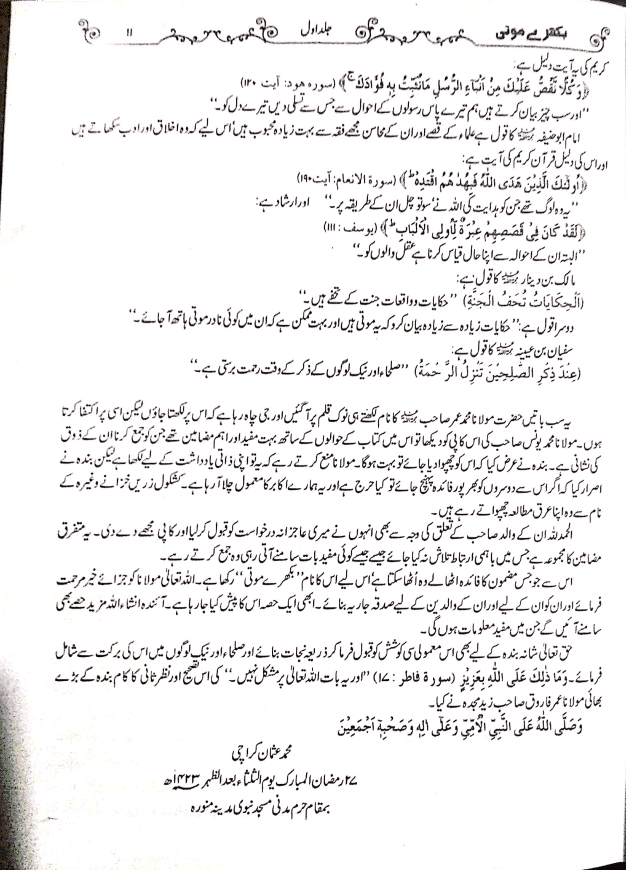 بکھرے موتی جلد اول ۱۱
کریم کی یہ آیت دلیل ہے:
﴿وَكُلًّا نَّقُصُّ عَلَيْكَ مِنْ اَنْبَآءِ الرُّسُلِ مَا نُثَبِّتُ بِهٖ فُؤَادَكَ ۚ﴾ (سورہ ھود: آیت ۱۲۰)
"اور سب چیز بیان کرتے ہیں ہم تیرے پاس رسولوں کے احوال سے جس سے تسلی دیں تیرے دل کو۔"
امام ابوحنیفہ رحمۃ اللہ علیہ کا قول ہے علماء کے قصے اور ان کے محاسن مجھے فقہ سے بہت زیادہ محبوب ہیں اس لیے کہ وہ اخلاق اور ادب سکھاتے ہیں
اور اس کی دلیل قرآن کریم کی آیت ہے:
﴿اُولٰٓئِكَ الَّذِيْنَ هَدَى اللّٰهُ فَبِهُدٰهُمُ اقْتَدِهْ ؕ﴾ (سورة الانعام: آیت ۱۹۰)
"یہ وہ لوگ تھے جن کو ہدایت کی اللہ نے سو تو چل ان کے طریقہ پر۔" اور ارشاد ہے:
﴿لَقَدْ كَانَ فِيْ قَصَصِهِمْ عِبْرَةٌ لِّاُولِي الْاَلْبَابِ ؕ﴾ (یوسف: ۱۱۱)
"البتہ ان کے احوالہ سے اپنا حال قیاس کرنا ہے عقل والوں کو۔"
مالک بن دینار رحمۃ اللہ علیہ کا قول ہے:
(اَلْحِكَايَاتُ تُحَفُ الْجَنَّةِ) "حکایات وواقعات جنت کے تحفے ہیں۔"
دوسرا قول ہے: "حکایات زیادہ سے زیادہ بیان کرو کہ یہ موتی ہیں اور بہت ممکن ہے کہ ان میں کوئی نادر موتی ہاتھ آ جائے۔"
سفیان بن عیینہ رحمۃ اللہ علیہ کا قول ہے:
(عِنْدَ ذِكْرِ الصَّلِحِيْنَ تَنْزِلُ الرَّحْمَةُ) "صلحاء اور نیک لوگوں کے ذکر کے وقت رحمت برستی ہے۔"
یہ سب باتیں حضرت مولانا محمد عمر صاحب رحمۃ اللہ علیہ کا نام لکھتے ہی نوک قلم پر آ گئیں اور جی چاہ رہا ہے کہ اس پر لکھتا جاؤں لیکن اسی پر اکتفا کرتا
ہوں۔ مولانا محمد یونس صاحب کی اس کاپی کو دیکھا تو اس میں کتاب کے حوالوں کے ساتھ بہت مفید اور اہم مضامین تھے جن کو جمع کرنا ان کے ذوق
کی نشانی ہے۔ بندہ نے عرض کیا کہ اس کو چھپوا دیا جائے تو بہت ہوگا۔ مولانا منع کرتے رہے کہ یہ تو اپنی ذاتی یادداشت کے لیے لکھا ہے لیکن بندہ نے
اصرار کیا کہ اگر اس سے دوسروں کو بھرپور فائدہ پہنچ جائے تو کیا حرج ہے اور یہ ہمارے اکابر کا معمول چلا آ رہا ہے۔ کشکول زریں خزانے وغیرہ کے
نام سے وہ اپنا عرق مطالعہ چھپواتے رہے ہیں۔
الحمد للہ ان کے والد صاحب کے تعلق کی وجہ سے بھی انہوں نے میری عاجزانہ درخواست کو قبول کر لیا اور کاپی مجھے دے دی۔ یہ متفرق
مضامین کا مجموعہ ہے جس میں باہمی ارتباط تلاش نہ کیا جائے جیسے جیسے کوئی مفید بات سامنے آتی رہی وہ جمع کرتے رہے۔
اس سے جو جس مضمون کا فائدہ اٹھالے وہ اُٹھا سکتا ہے اس لیے اس کا نام "بکھرے موتی" رکھا ہے۔ اللہ تعالیٰ مولانا کو جزائے خیر مرحمت
فرمائے اور ان کو ان کے لیے اور ان کے والدین کے لیے صدقہ جاریہ بنائے۔ ابھی ایک حصہ اس کا پیش کیا جا رہا ہے۔ آئندہ انشاء اللہ مزید حصے بھی
سامنے آئیں گے جن میں مفید معلومات ہوں گی۔
حق تعالیٰ شانہ بندہ کے لیے بھی اس معمولی سی کوشش کو قبول فرما کر ذریعہ نجات بنائے اور صلحاء اور نیک لوگوں میں اس کی برکت سے شامل
فرمائے۔ وَمَا ذٰلِكَ عَلَى اللّٰهِ بِعَزِيْزٍ (سورة فاطر: ۱۷) "اور یہ بات اللہ تعالیٰ پر مشکل نہیں۔" کی اس تصحیح اور نظر ثانی کا کام بندہ کے بڑے
بھائی مولانا عمر فاروق صاحب زید مجدہ نے کیا۔
وَصَلَّى اللّٰهُ عَلَى النَّبِيِّ الْاُمِّيِّ وَعَلٰى اٰلِهٖ وَصَحْبِهٖٓ اَجْمَعِيْنَ
محمد عثمان کراچی
۲۷ رمضان المبارک یوم الثلثاء بعد الظہر ۱۴۲۳ھ
بمقام حرم مدنی مسجد نبوی مدینہ منورہ